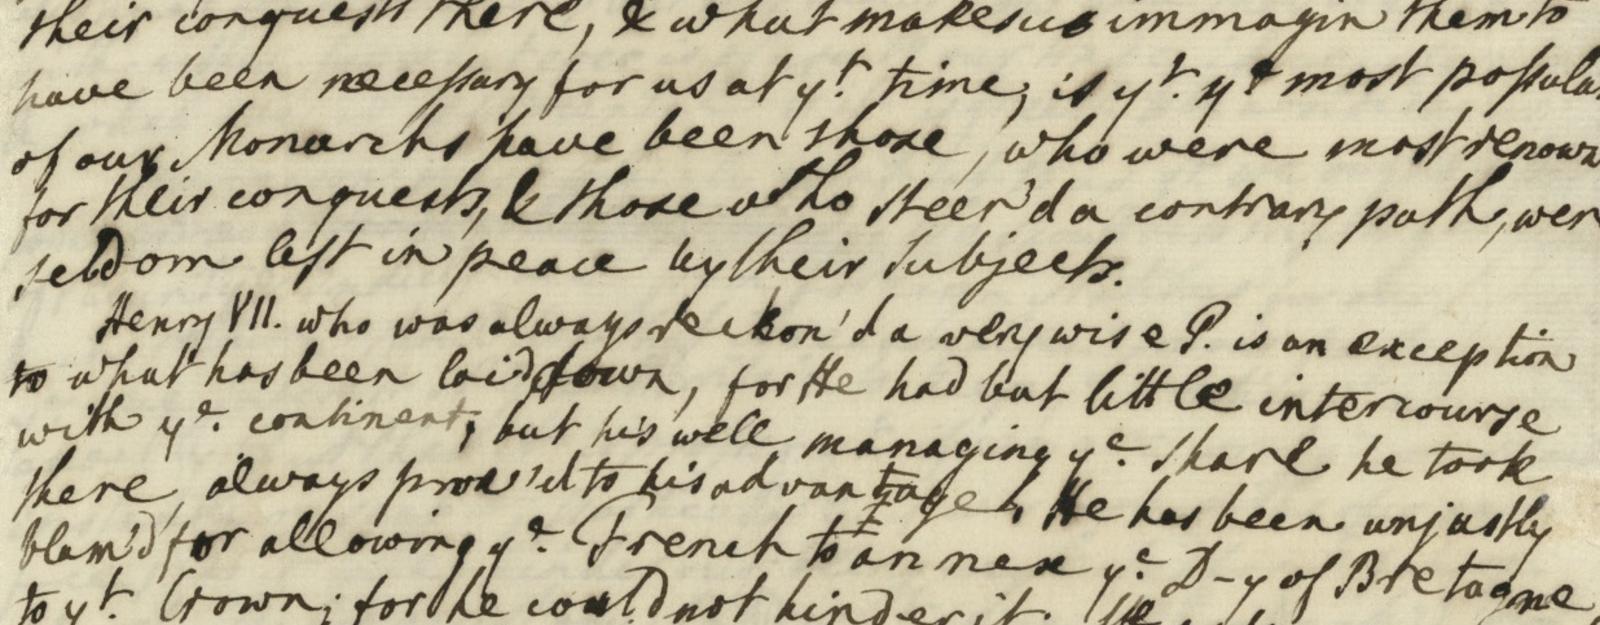 their conquests there, & what makes us immagin them to
have been necessary for us at yt. time, is yt. ye most popular
of our Monarchs have been those, who were most renown
for their conquests, & those who steer'd a contrary path, wer
seldom left in peace by their Subjects.
Henry VII. who was always reckon'd a very wise P. is an exception
to what has been laid down, for He had but little intercourse
with ye. continent, but his well managing ye. share he took
there, always prov'd to his advantage, He has been unjustly
blam'd for allowing ye. French to annex ye. D-y of Bretagne
to yt. Crown; for he could not hinder it. He